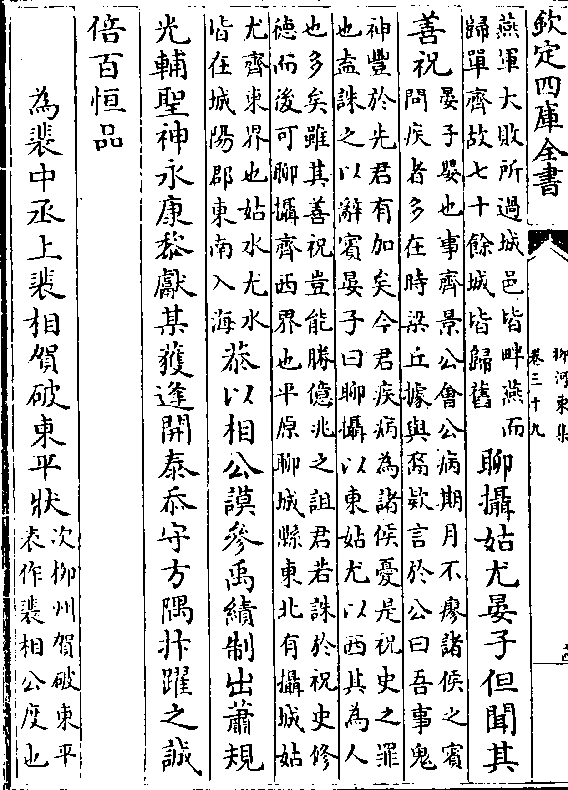 欽定四庫全書
柳河東集
卷三十九
燕軍大敗所過城邑皆畔燕而
歸單齊故七十餘城皆歸舊
聊攝姑尤晏子但聞其
善祝
晏子嬰也事齊景公會公病期月不瘳諸侯之賓
問疾者多在時梁丘據與裔欵言於公曰吾事鬼
神豐於先君有加矣今君疾病為諸侯憂是祝史之罪
也盍誅之以辭賓晏子曰聊攝以東姑尤以西其為人
也多矣雖其善祝豈能勝億兆之詛君若誅於祝史修
德而後可聊攝齊西界也平原聊城縣東北有攝城姑
尤齊東界也姑水尤水
皆在城陽郡東南入海
恭以相公謨參禹績制出蕭規
光輔聖神永康黎獻某獲逢開泰忝守方隅抃躍之誠
倍百恒品
為裴中丞上裴相賀破東平狀
次柳州賀破東平
表作裴相公度也